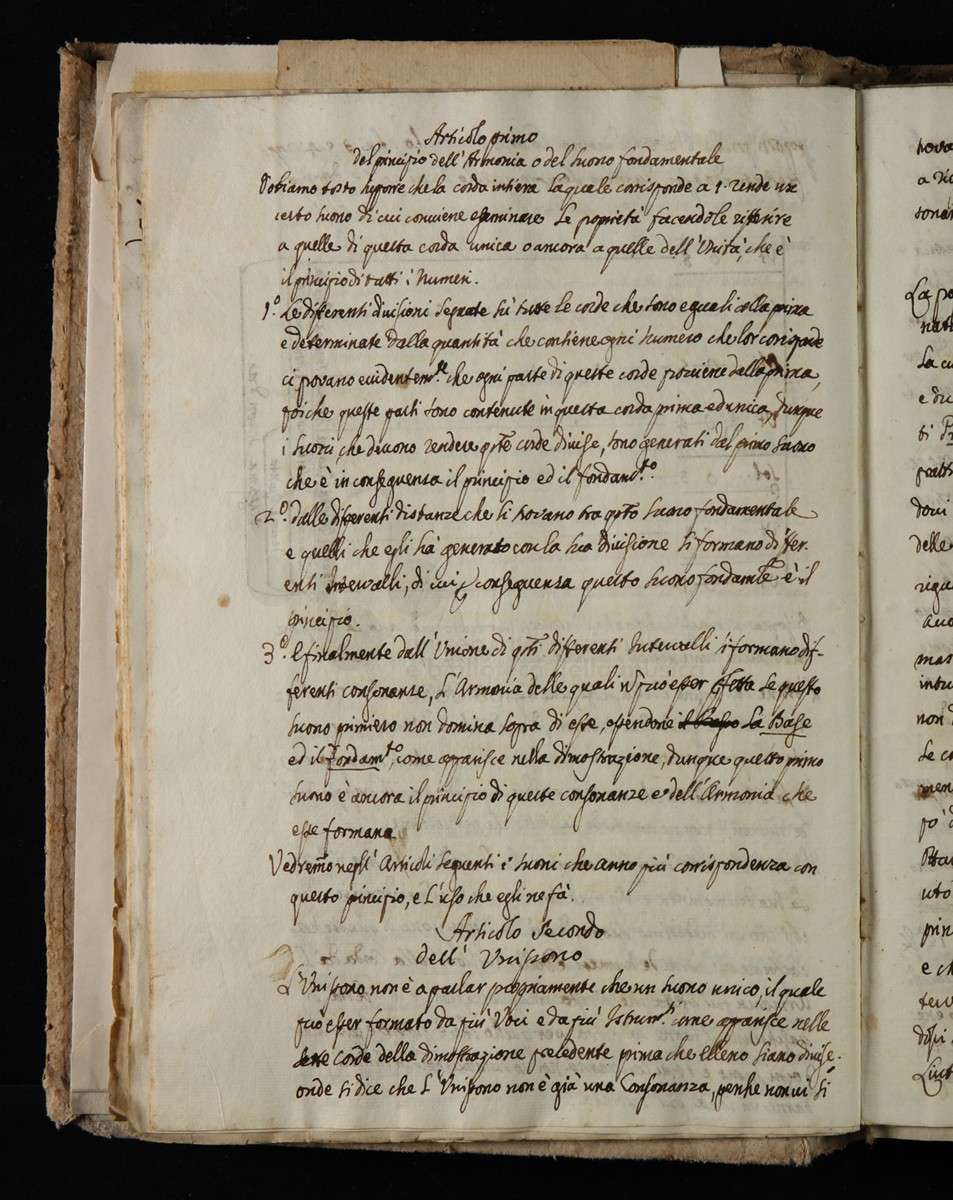 Articolo primo
Del principio dell'Armonia o del suono fondamentale
Dobiamo tosto supporre che la corda intiera laquale corrisponde a 1. rende un
certo suono di cui conviene esseminare le proprietà facendole rifferire
a quelle di questa corda unica o ancora a quelle dell'Unità, che è
il principio di tutti i numeri.
1.º Le differenti divisioni segnate sù tutte le corde che sono eguali alla prima
e determinate dalla quantità che contiene ogni numero che lor corrisponde
ci provano evidentem.te che ogni parte di queste corde proviene dalla prima,
poiche queste parti sono contenute in questa corda prima ed unica, dunque
i suoni che devono rendere q.te corde divise, sono generati dal primo suono
che è in conseguenza il principio ed il fondam.to.
2.º dalle differenti distanze che si trovano tra q.to suono fondamentale
e quelli che egli hà generato con la sua divisione si formano differ-
enti Intervalli, di cui p conseguenza questo suono fondamt.e è il
principio.
3.º e finalmente dall'Unione di q.ti differenti Intervalli si formano dif-
ferenti consonanze, L'Armonia delle quali ñ può esser perfetta se questo
suono primiero non domina sopra di esse, essendone il Basso La Base
ed il Fondam.to, come apparisce nella dimostrazione, dunque questo primo
suono è ancora il principio di queste consonanze e dell'Armonia che
esse formana
Vedremo negl'Articoli seguenti i suoni che anno più corrispondenza con
questo principio, e L'uso che egli ne fà.
Articolo Secondo
dell'Unissono
L'Unissono non è a parlar propriamente che un suono unico, il quale
può esser formato da più Voci e da più Istrum.ti come apparisce nelle
sette corde della dimostrazione precedente prima che elleno siano divise.
onde si dice che L'Unissono non è già una Consonanza, perche non vi si